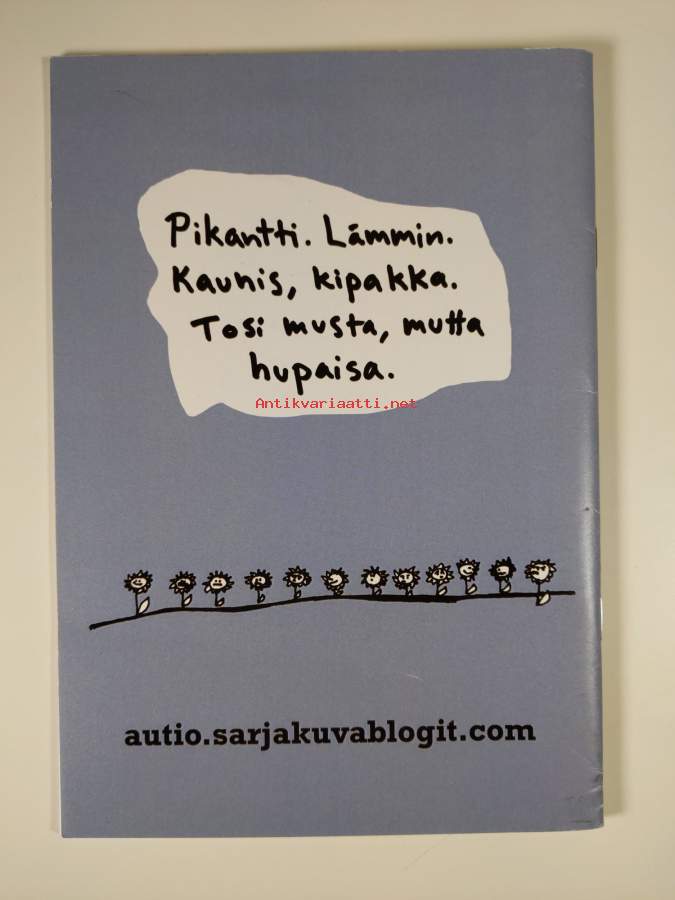 Pikantti. Lämmin.
Kaunis, kipakka.
Tosi musta, mutta
hupaisa.
Antikvariaatti.net
autio.sarjakuvablogit.com